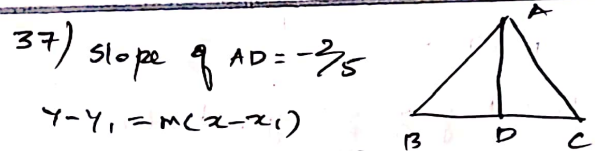 37) Slope of AD = -2/5
Y-Y₁ = m(x-x₁)
A
B D C